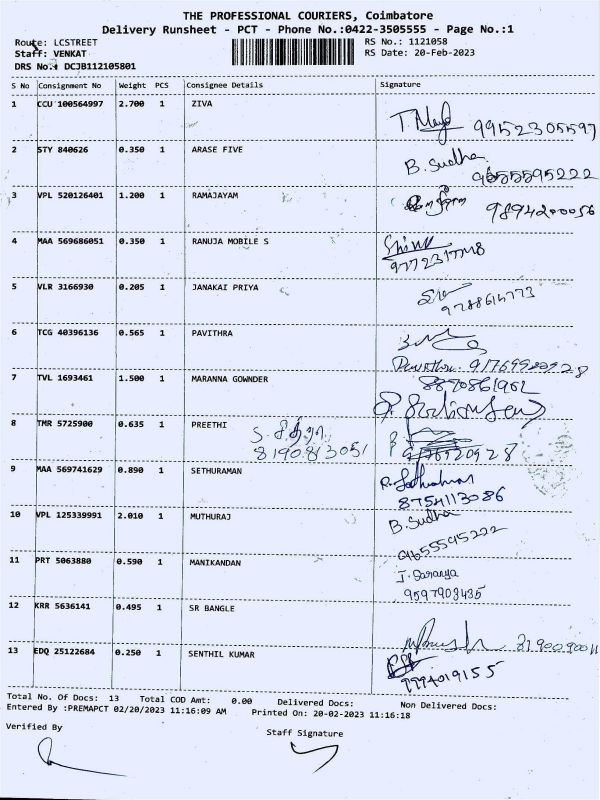 THE PROFESSIONAL COURIERS, Coimbatore
Delivery Runsheet - PCT - Phone No.:0422-3505555 - Page No.:1
Route: LCSTREET RS No.: 1121058
Staff: VENKAT RS Date: 20-Feb-2023
DRS No.: DCJB112105801
S No Consignment No Weight PCS Consignee Details Signature
1 CCU 100564997 2.700 1 ZIVA
9952305597
2 STY 840626 0.350 1 ARASE FIVE B. Sudha
9655595222
3 VPL 520126401 1.200 1 RAMAJAYAM
9894200056
4 MAA 569686051 0.350 1 RANUJA MOBILE S
5 VLR 3166930 0.205 1 JANAKAI PRIYA
9788614773
6 TCG 40396136 0.565 1 PAVITHRA
7 TVL 1693461 1.500 1 MARANNA GOWNDER
8870861962
8 TMR 5725900 0.635 1 PREETHI
8190813051
9 MAA 569741629 0.890 1 SETHURAMAN
8754113086
10 VPL 125339991 2.010 1 MUTHURAJ B. Sudha
9655595222
11 PRT 5063880 0.590 1 MANIKANDAN J. Saranya
9597903435
12 KRR 5636141 0.495 1 SR BANGLE
13 EDQ 25122684 0.250 1 SENTHIL KUMAR
9994019155
Total No. Of Docs: 13 Total COD Amt: 0.00 Delivered Docs: Non Delivered Docs:
Entered By :PREMAPCT 02/20/2023 11:16:09 AM Printed On: 20-02-2023 11:16:18
Verified By Staff Signature